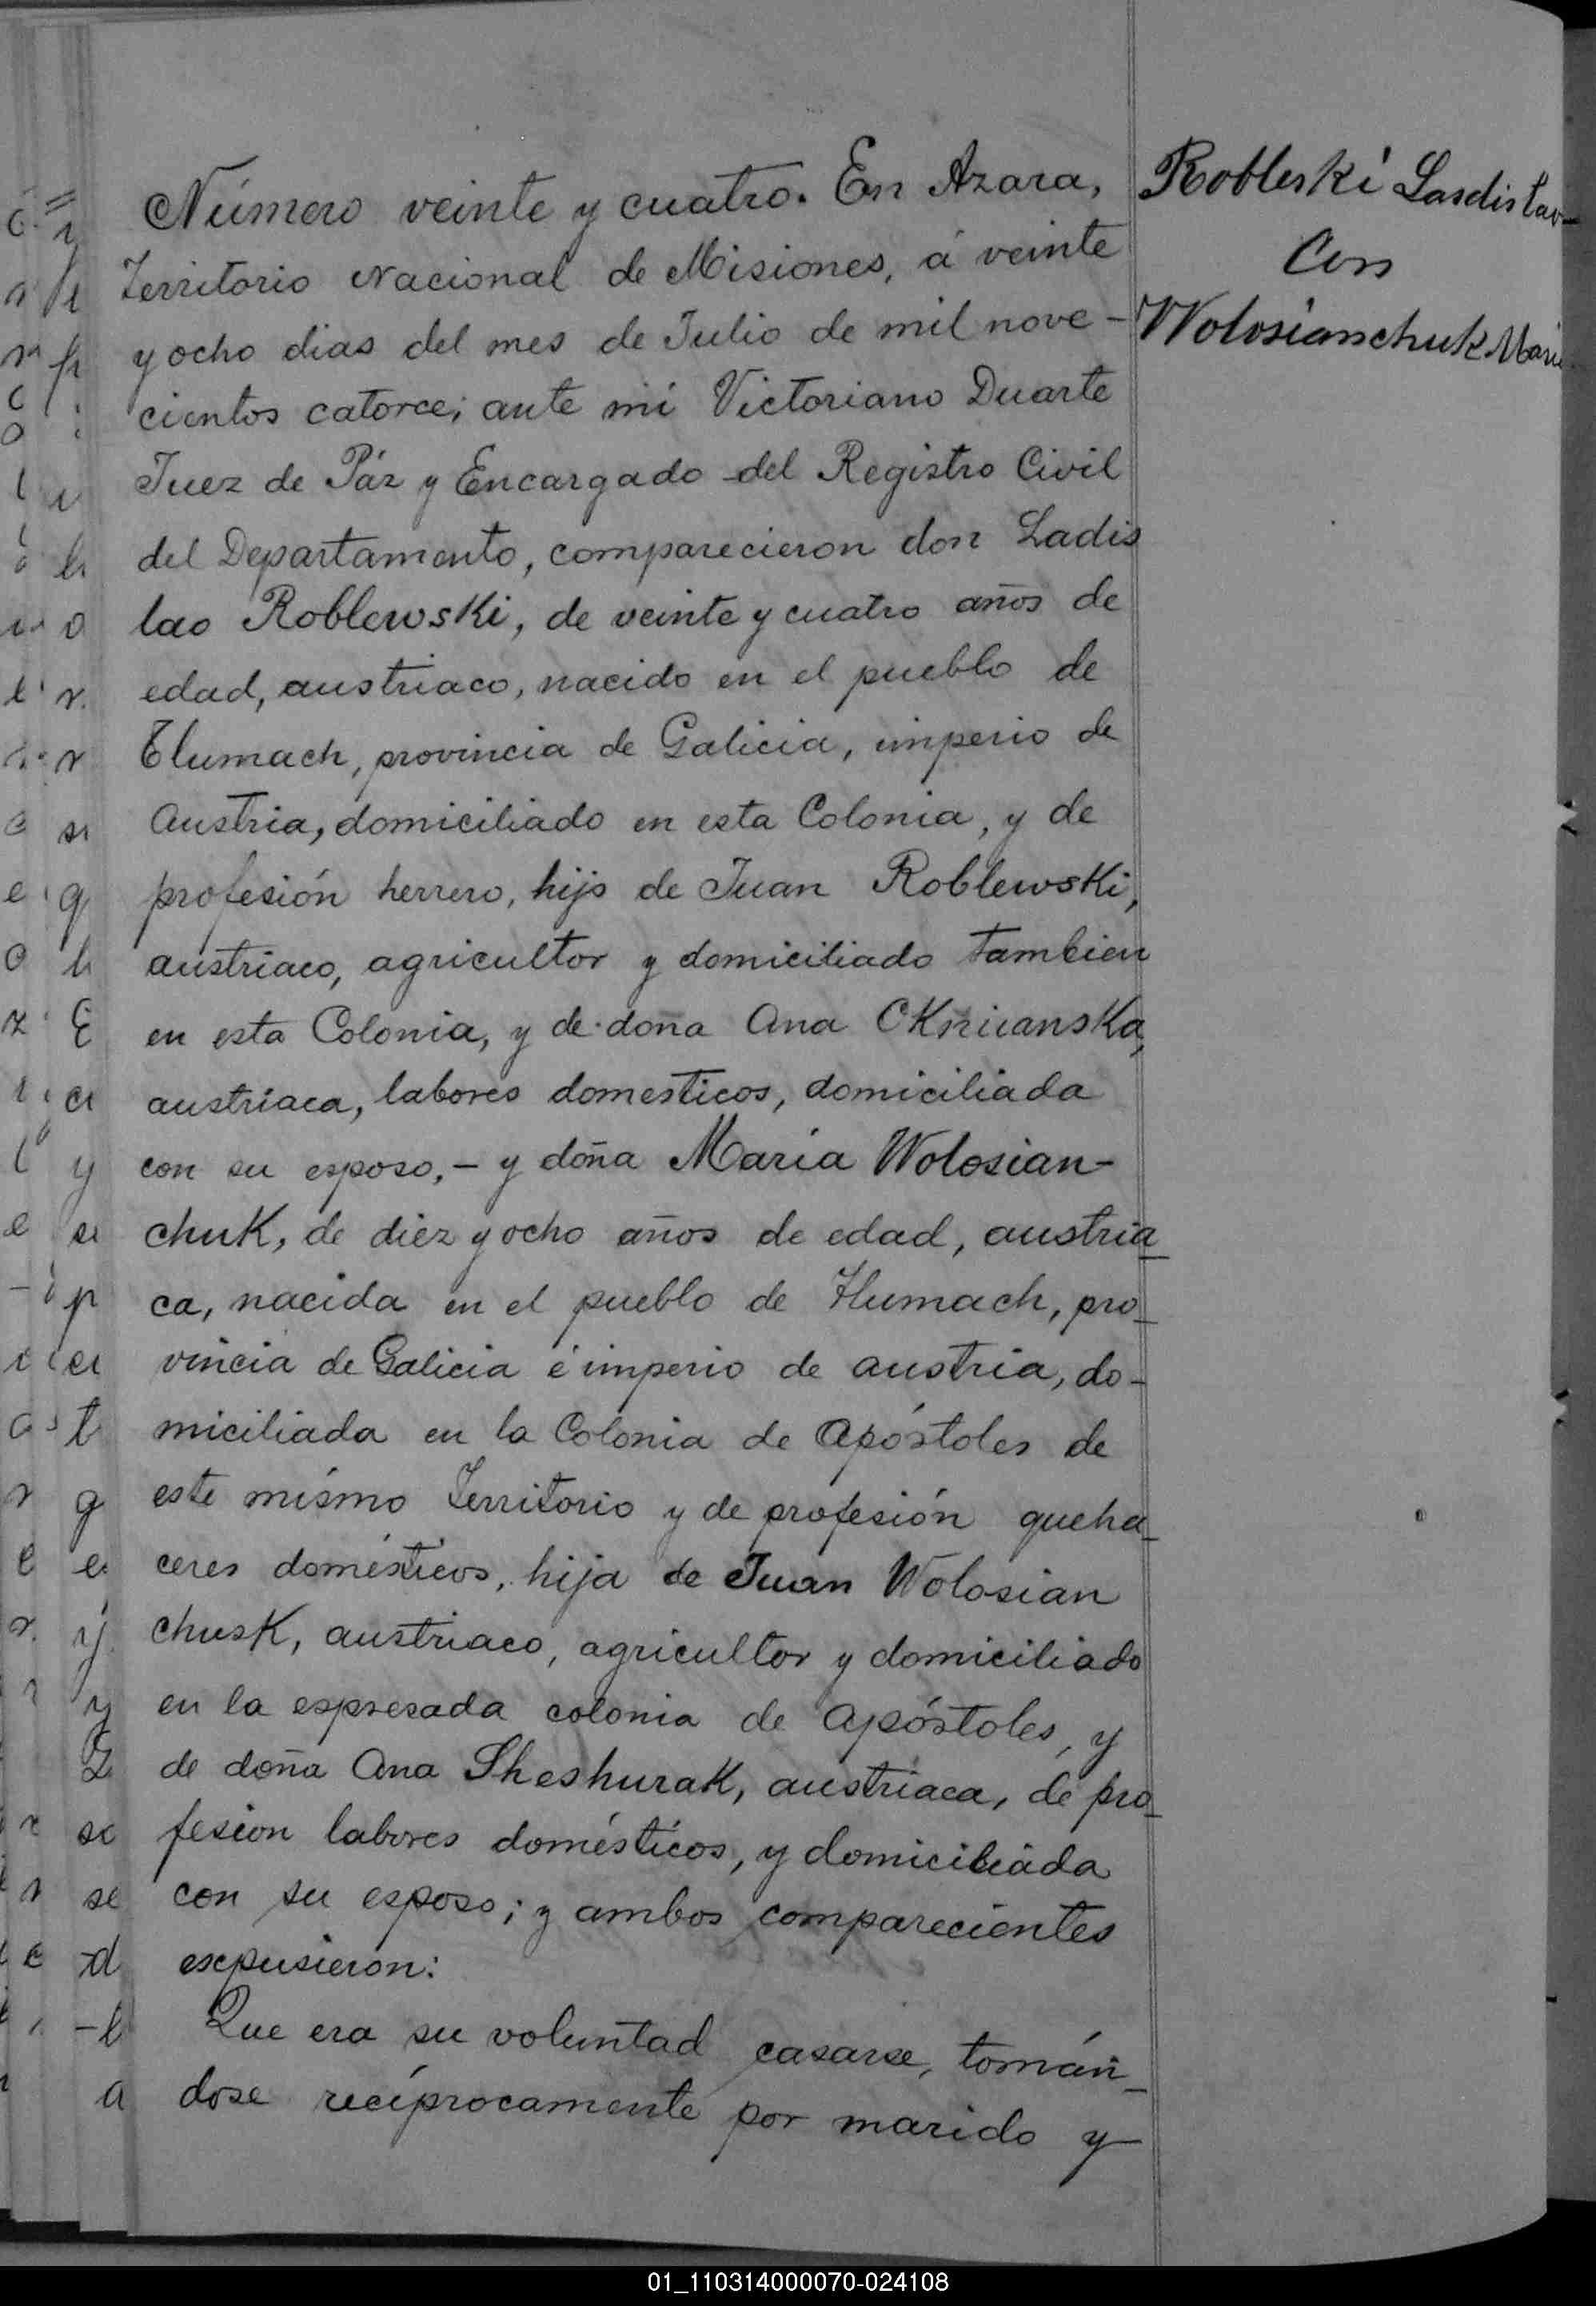 Número veinte y cuatro. En Azara,
Territorio Nacional de Misiones, á veinte
y ocho dias del mes de Julio de mil nove-
cientos catorce; ante mi Victoriano Duarte
Juez de Páz y Encargado del Registro Civil
del Departamento, comparecieron don Ladis
lao Roblewski, de veinte y cuatro años de
edad, austriaco, nacido en el pueblo de
Tlumach, provincia de Galicia, imperio de
Austria, domiciliado en esta Colonia, y de
profesión herrero, hijo de Juan Roblewski,
austriaco, agricultor y domiciliado tambien
en esta Colonia, y de doña Ana
austriaca, labores domesticos, domiciliada
con su esposo,- y doña María Wolosian-
chuk, de diez y ocho años de edad, austria
ca, nacida en el pueblo de Tlumach, pro_
vincia de Galicia é imperio de austria, do-
miciliada en la Colonia de Apóstoles de
este mismo Territorio y de profesión queha_
ceres domésticos, hija de Juan Wolosian
chusk, austriaco, agricultor y domiciliado
en la espresada colonia de Apóstoles, y
de doña Ana Sheshurak, austriaca, de pro_
fesion labores domésticos, y domiciliada
con su esposo; y ambos comparecientes
expusieron:
Que era su voluntad casarse, tomán_
dose recíprocamente por marido y
Robleski Lasdislav
Con
Wolosianchuk Mari
01_110314000070-024108